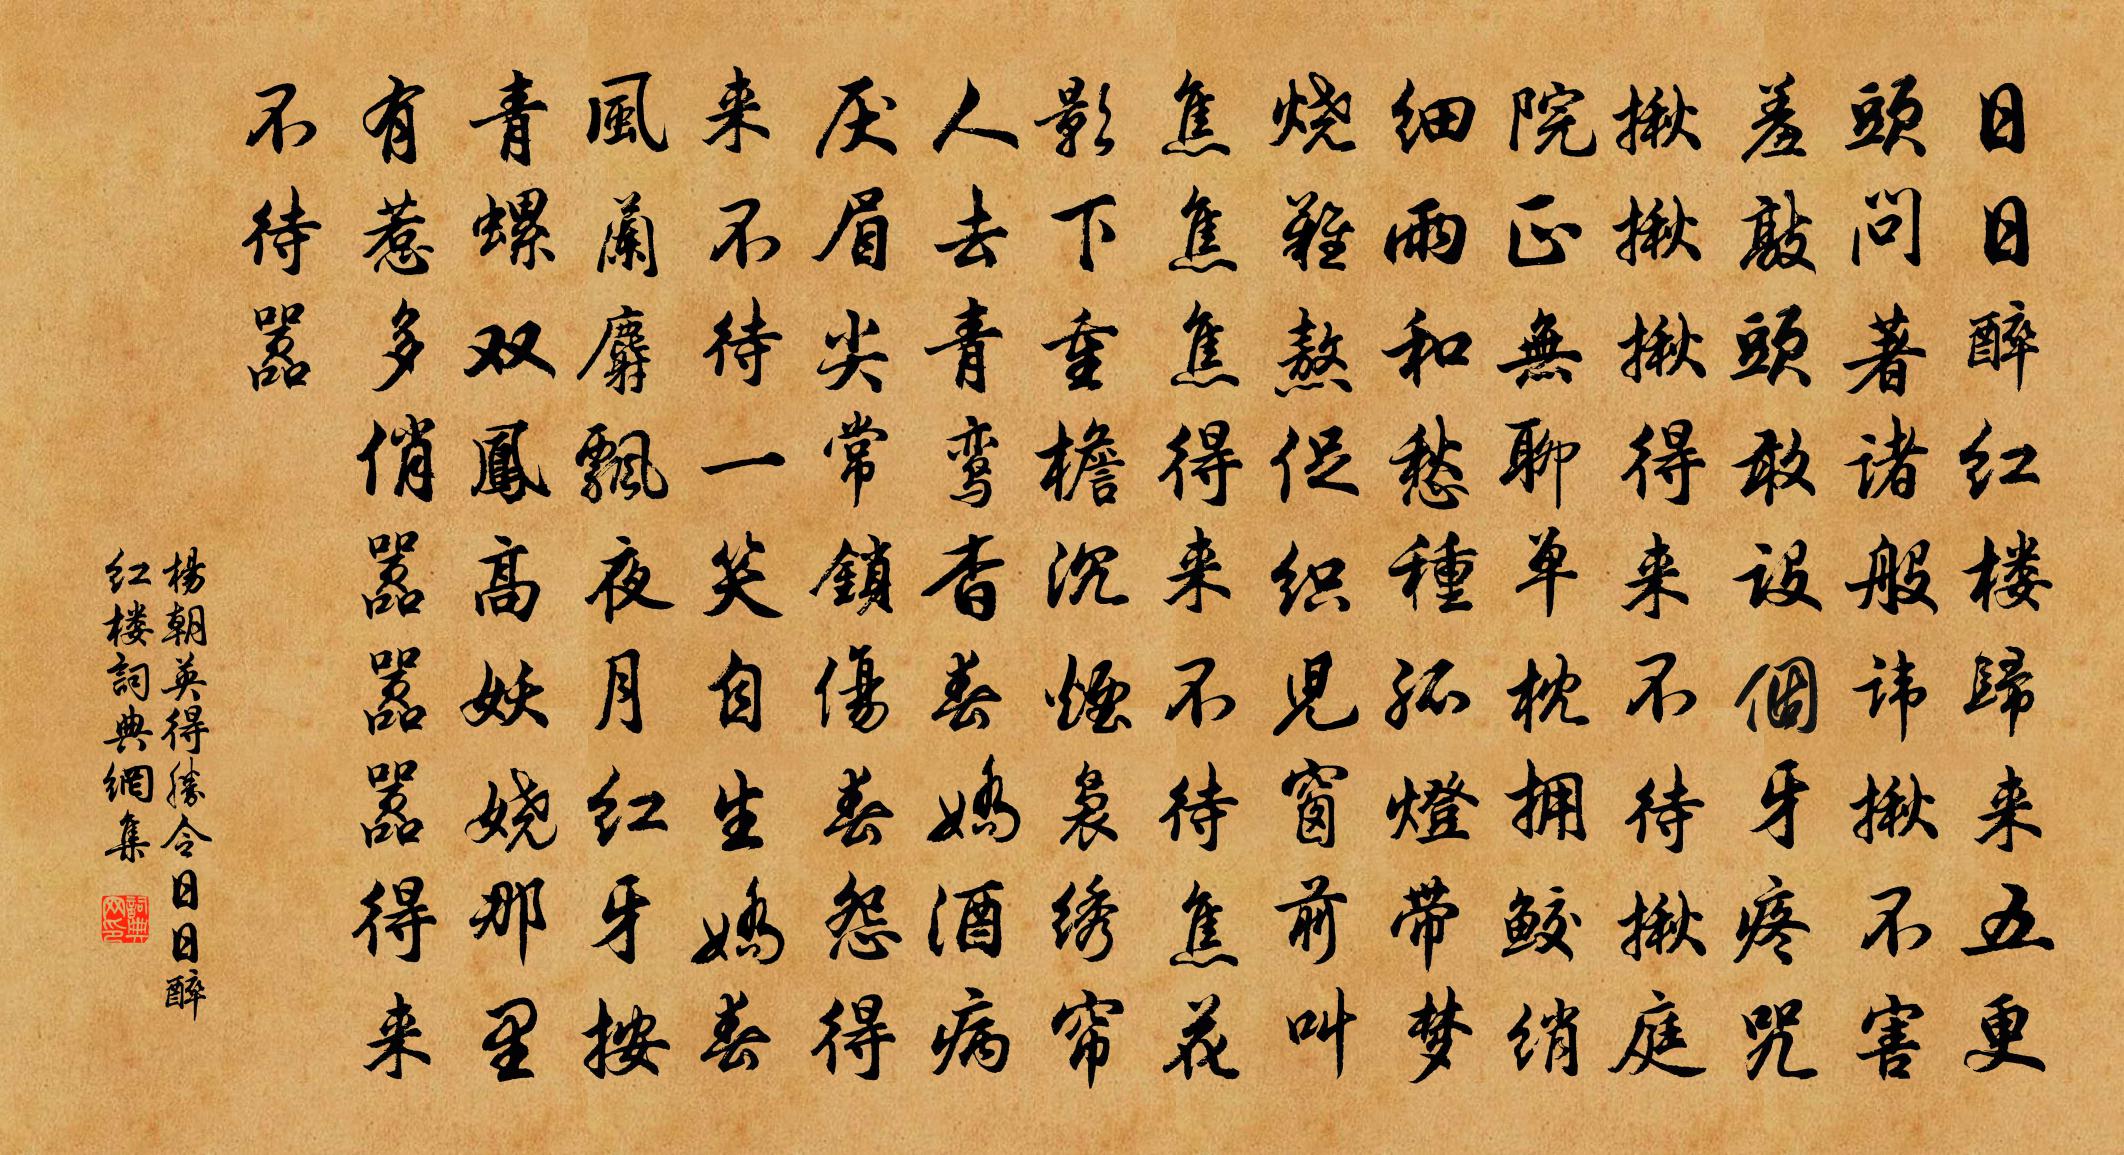 日日醉红楼歸来五更
頭問著诸般讳揪不害
羞敲頭敢設個牙疼咒
揪揪揪得来不待揪庭
院正無聊单枕拥鲛绡
细雨和愁種孤燈带梦
烧難熬促织儿窗前叫
焦焦焦得来不待焦花
影下重檐沉煙袅绣帘
人去青鸾杳春嬌酒病
厌眉尖常鎖傷春怨得
来不待一笑自生嬌春
風蘭麝飄夜月红牙按
青螺双鳳高妖娆那里
有惹多俏嚣嚣嚣得来
不待嚣
楊朝英得勝令日日醉
红楼詞典網集
詞典网印